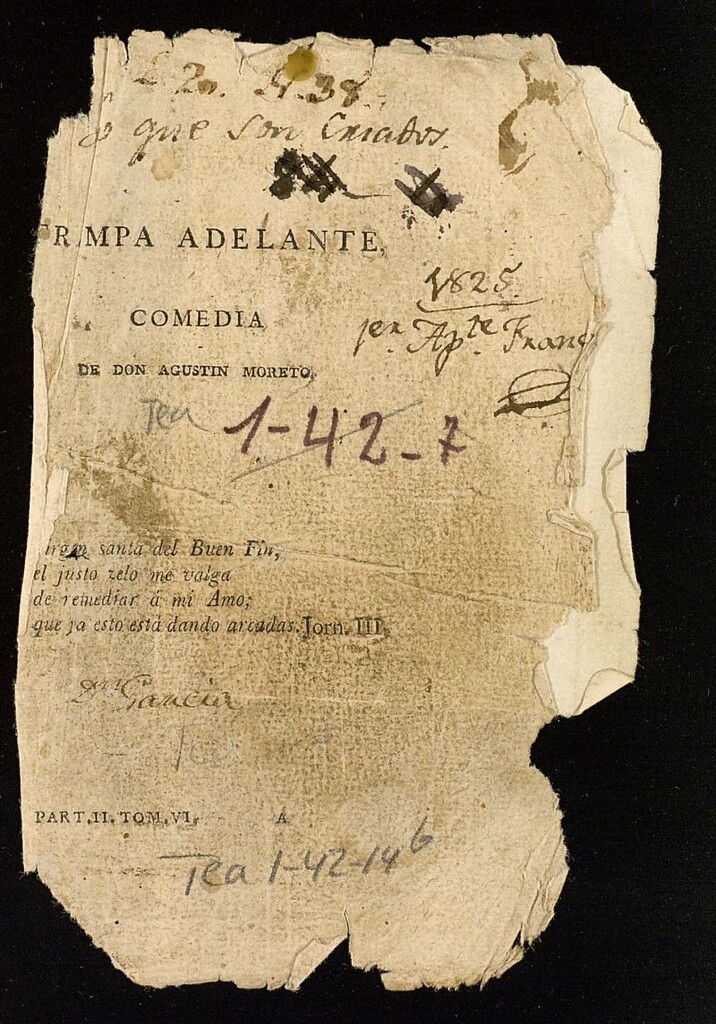 L. 2o. N. 38
que son Criados.
TRMPA ADELANTE,
COMEDIA
DE DON AGUSTIN MORETO.
1825.
per. Apte. Franc
Tea
1-42-7
irgen santa del Buen Fin,
el justo zelo me valga
de remediar á mi Amo;
que ya esto está dando arcadas. Jorn. III.
Garcia
PART. II. TOM. VI.
A
Tea 1-42-14 b